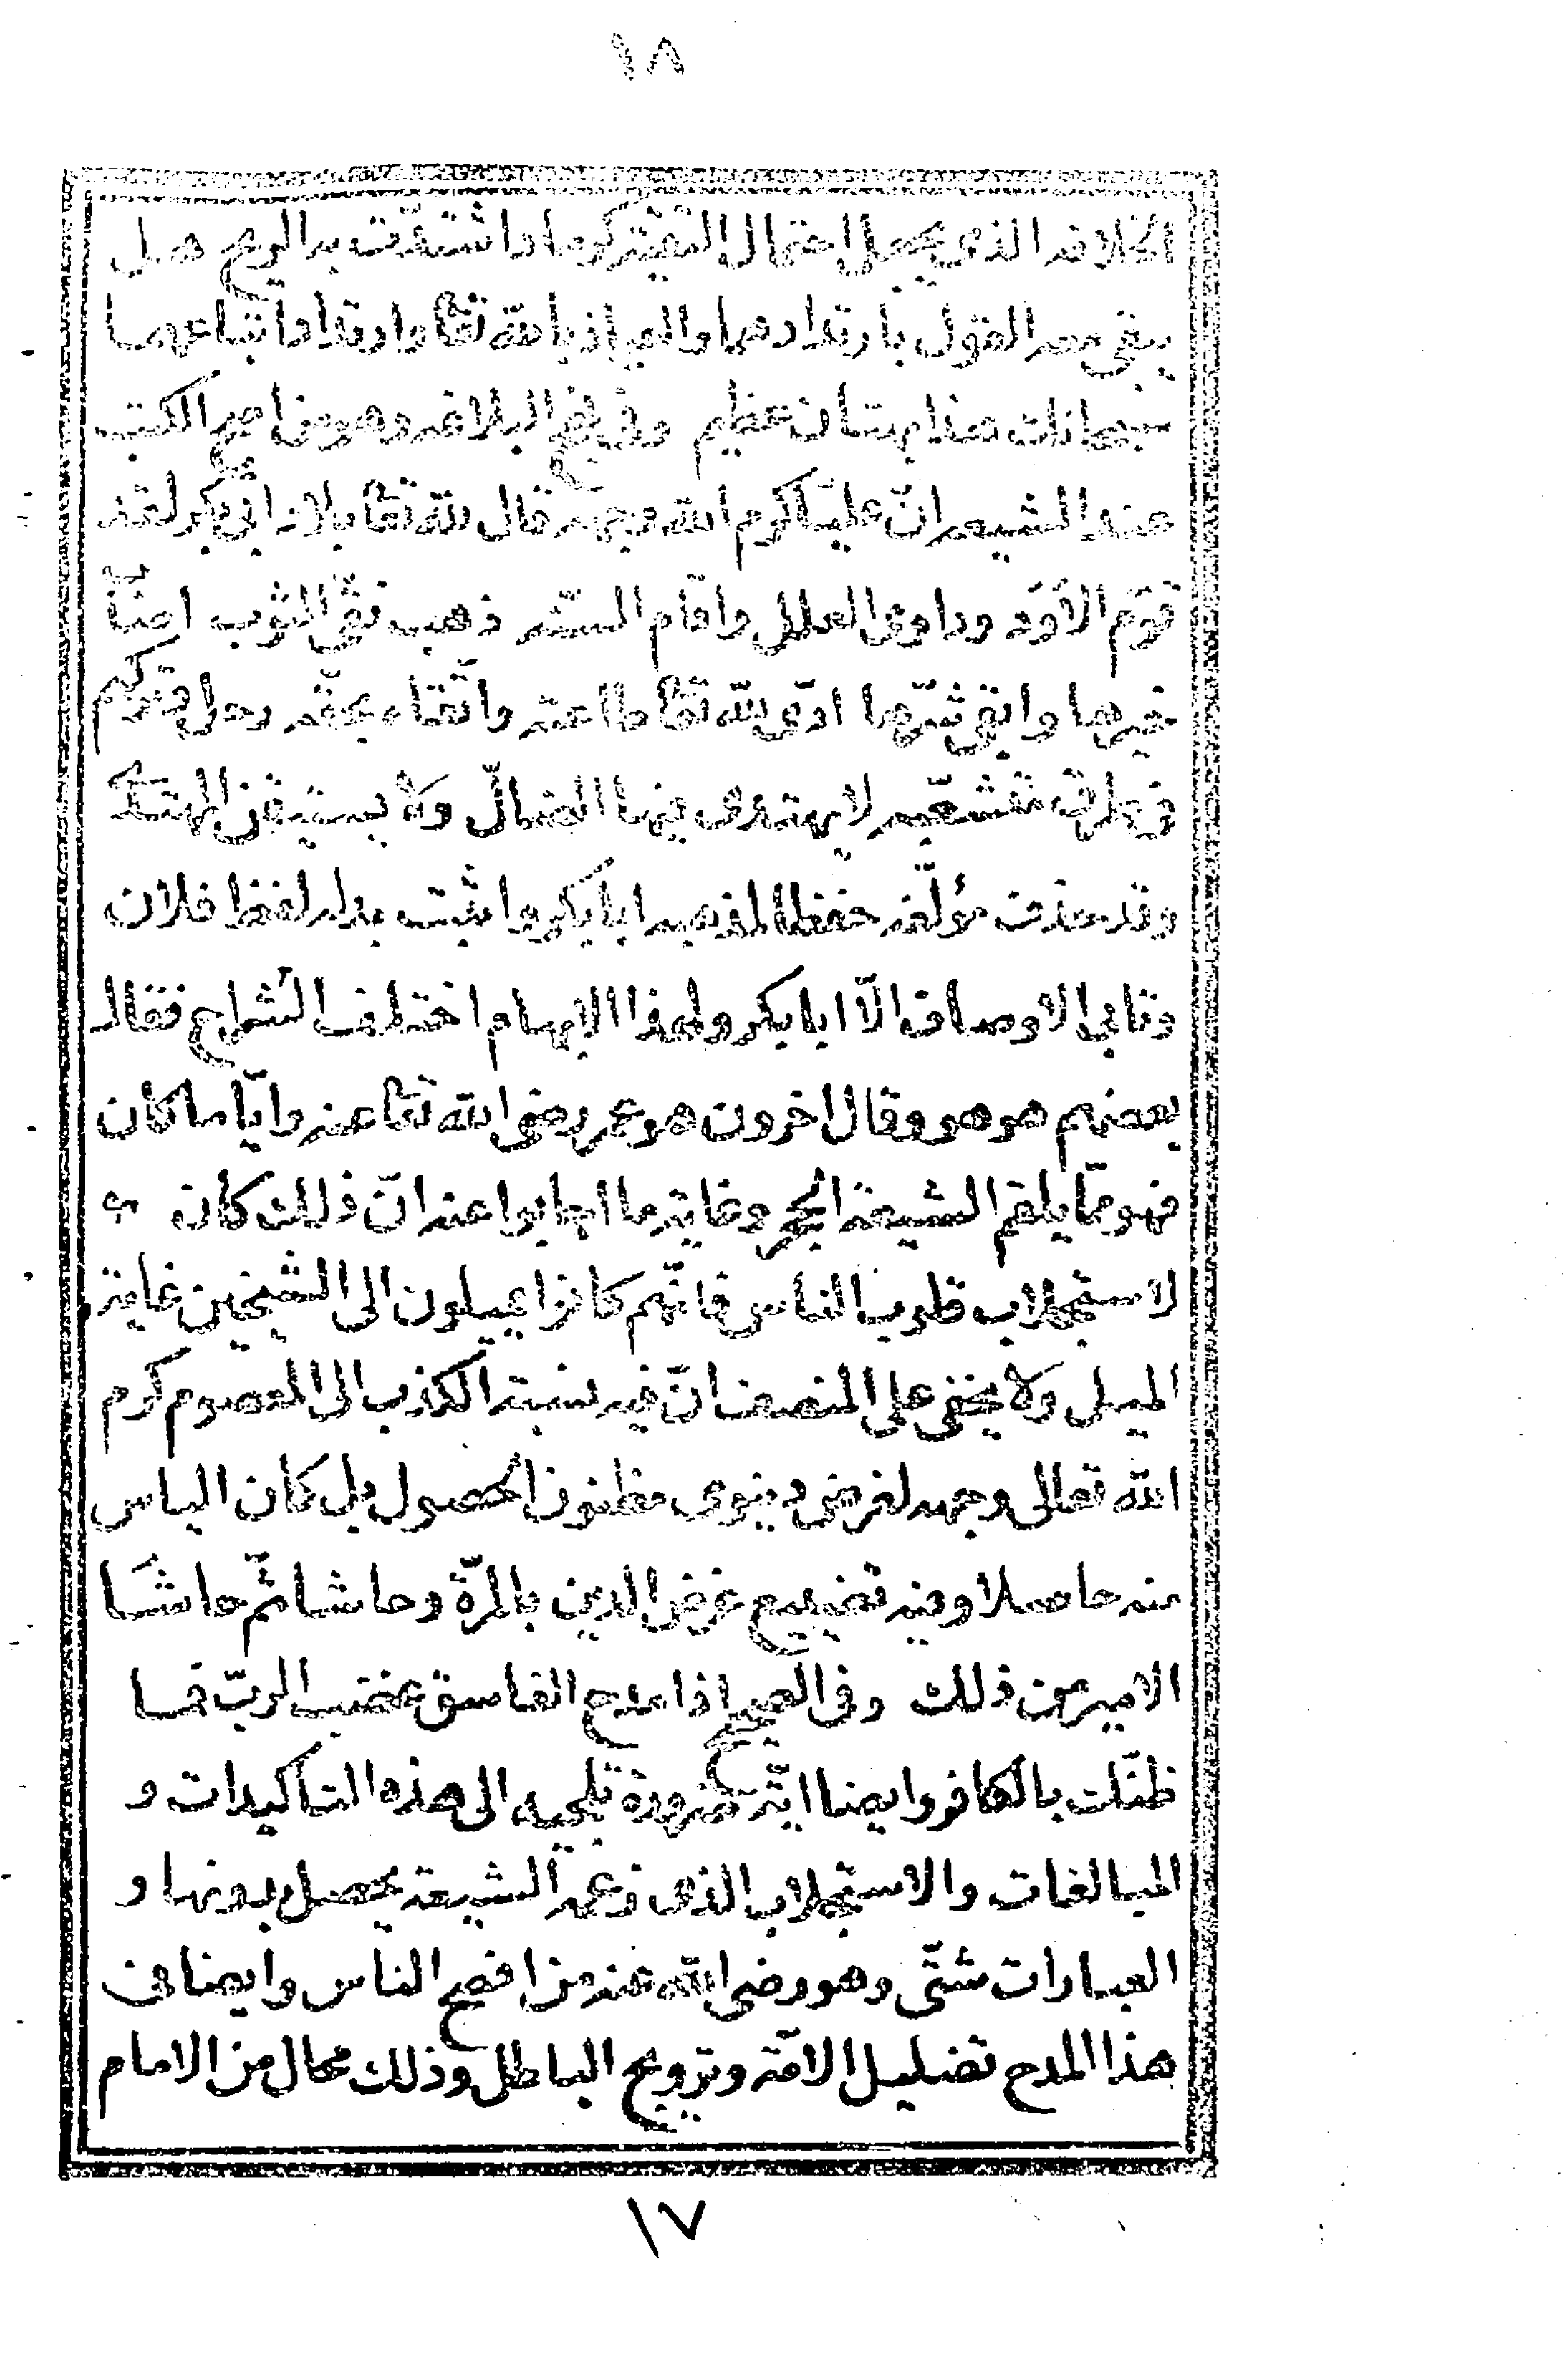 ١٨
الخلافه الذى يجعل احتمال التقية كرماد اشتدّت به الريح هل
يبقى معه القول بارتدادهما والعياذ بالله تعا وارتداد أتباعهما
سبحانك هذا بهتان عظيم وفى نهج البلاغه وهو من اصح الكتب
عند الشيعه انّ عليّا كرم الله وجهه قال لله تعا بلاد ابى بكر لقد
قوّم الأوَد وداوى العلل واقام السنّه ذهب نقىّ الثوب اصاب
خيرها واتقى شرّها ادّى لله تعا طاعته واتّقاه بحقّه رحل وتركهم
فى طرق متشعّبه لا يهتدى فيها الضالّ ولا يستيقن المهتدى
وقد حذف مؤلّفه حفظا لمذهبه ابا بكر واثبت بدله لفظ فلان
وتابى الاوصاف الّا ابا بكر ولهذا الابهام اختلف الشراح فقال
بعضهم هو هو وقال اخرون هو عمر رضى الله تعا عنه وايّا ما كان
فهو ممّا يلقم الشيعة الحجر وغاية ما اجابوا عنه انّ ذلك كان
لاستجلاب قلوب الناس فانّهم كانوا يميلون الى الشيخين غاية
الميل ولا يخفى على المنصف انّ فيه نسبة الكذب الى المعصوم كرم
الله تعالى وجهه لغرض دنيوى مظنون الحصول بل كان الياس
منه حاصلا وفيه تضييع غرض الدين بالمرّة وحاشا ثمّ حاشا
الامير من ذلك وفى الصحيح اذا مدح الفاسق غضب الربّ فما
ظنّك بالكافر وايضا ايّة ضرورة تلجيه الى هذه التاكيدات و
المبالغات والاستجلاب الذى زعمه الشيعة يحصل بدونها و
العبارات شتّى وهو رضى الله عنه من افصح الناس وايضا فى
هذا المدح تضليل الامّة وترويج الباطل وذلك محال من الامام
١٧